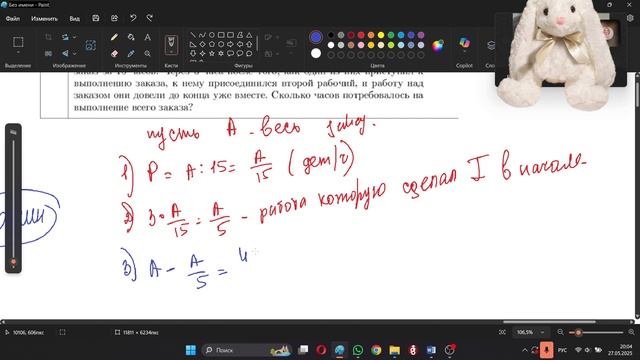 Без имени - Paint
Файл Изменить Просмотреть
Изображение Инструменты Кисти Фигуры Цвета Copilot Слои
выполнению заказа, к нему присоединился второй рабочий, и работу над
заказом они довели до конца уже вместе. Сколько часов потребовалось на
выполнение всего заказа?
пусть A - весь заказ.
1) P = A : 15 = A/15 (дет/ч)
2) 3 · A/15 = A/5 - работа которую сделал I в начале
3) A - A/5 = 4
10106, 606пкс 11811 × 6234пкс 106,5%
Поиск РУС 20:04
27.05.202